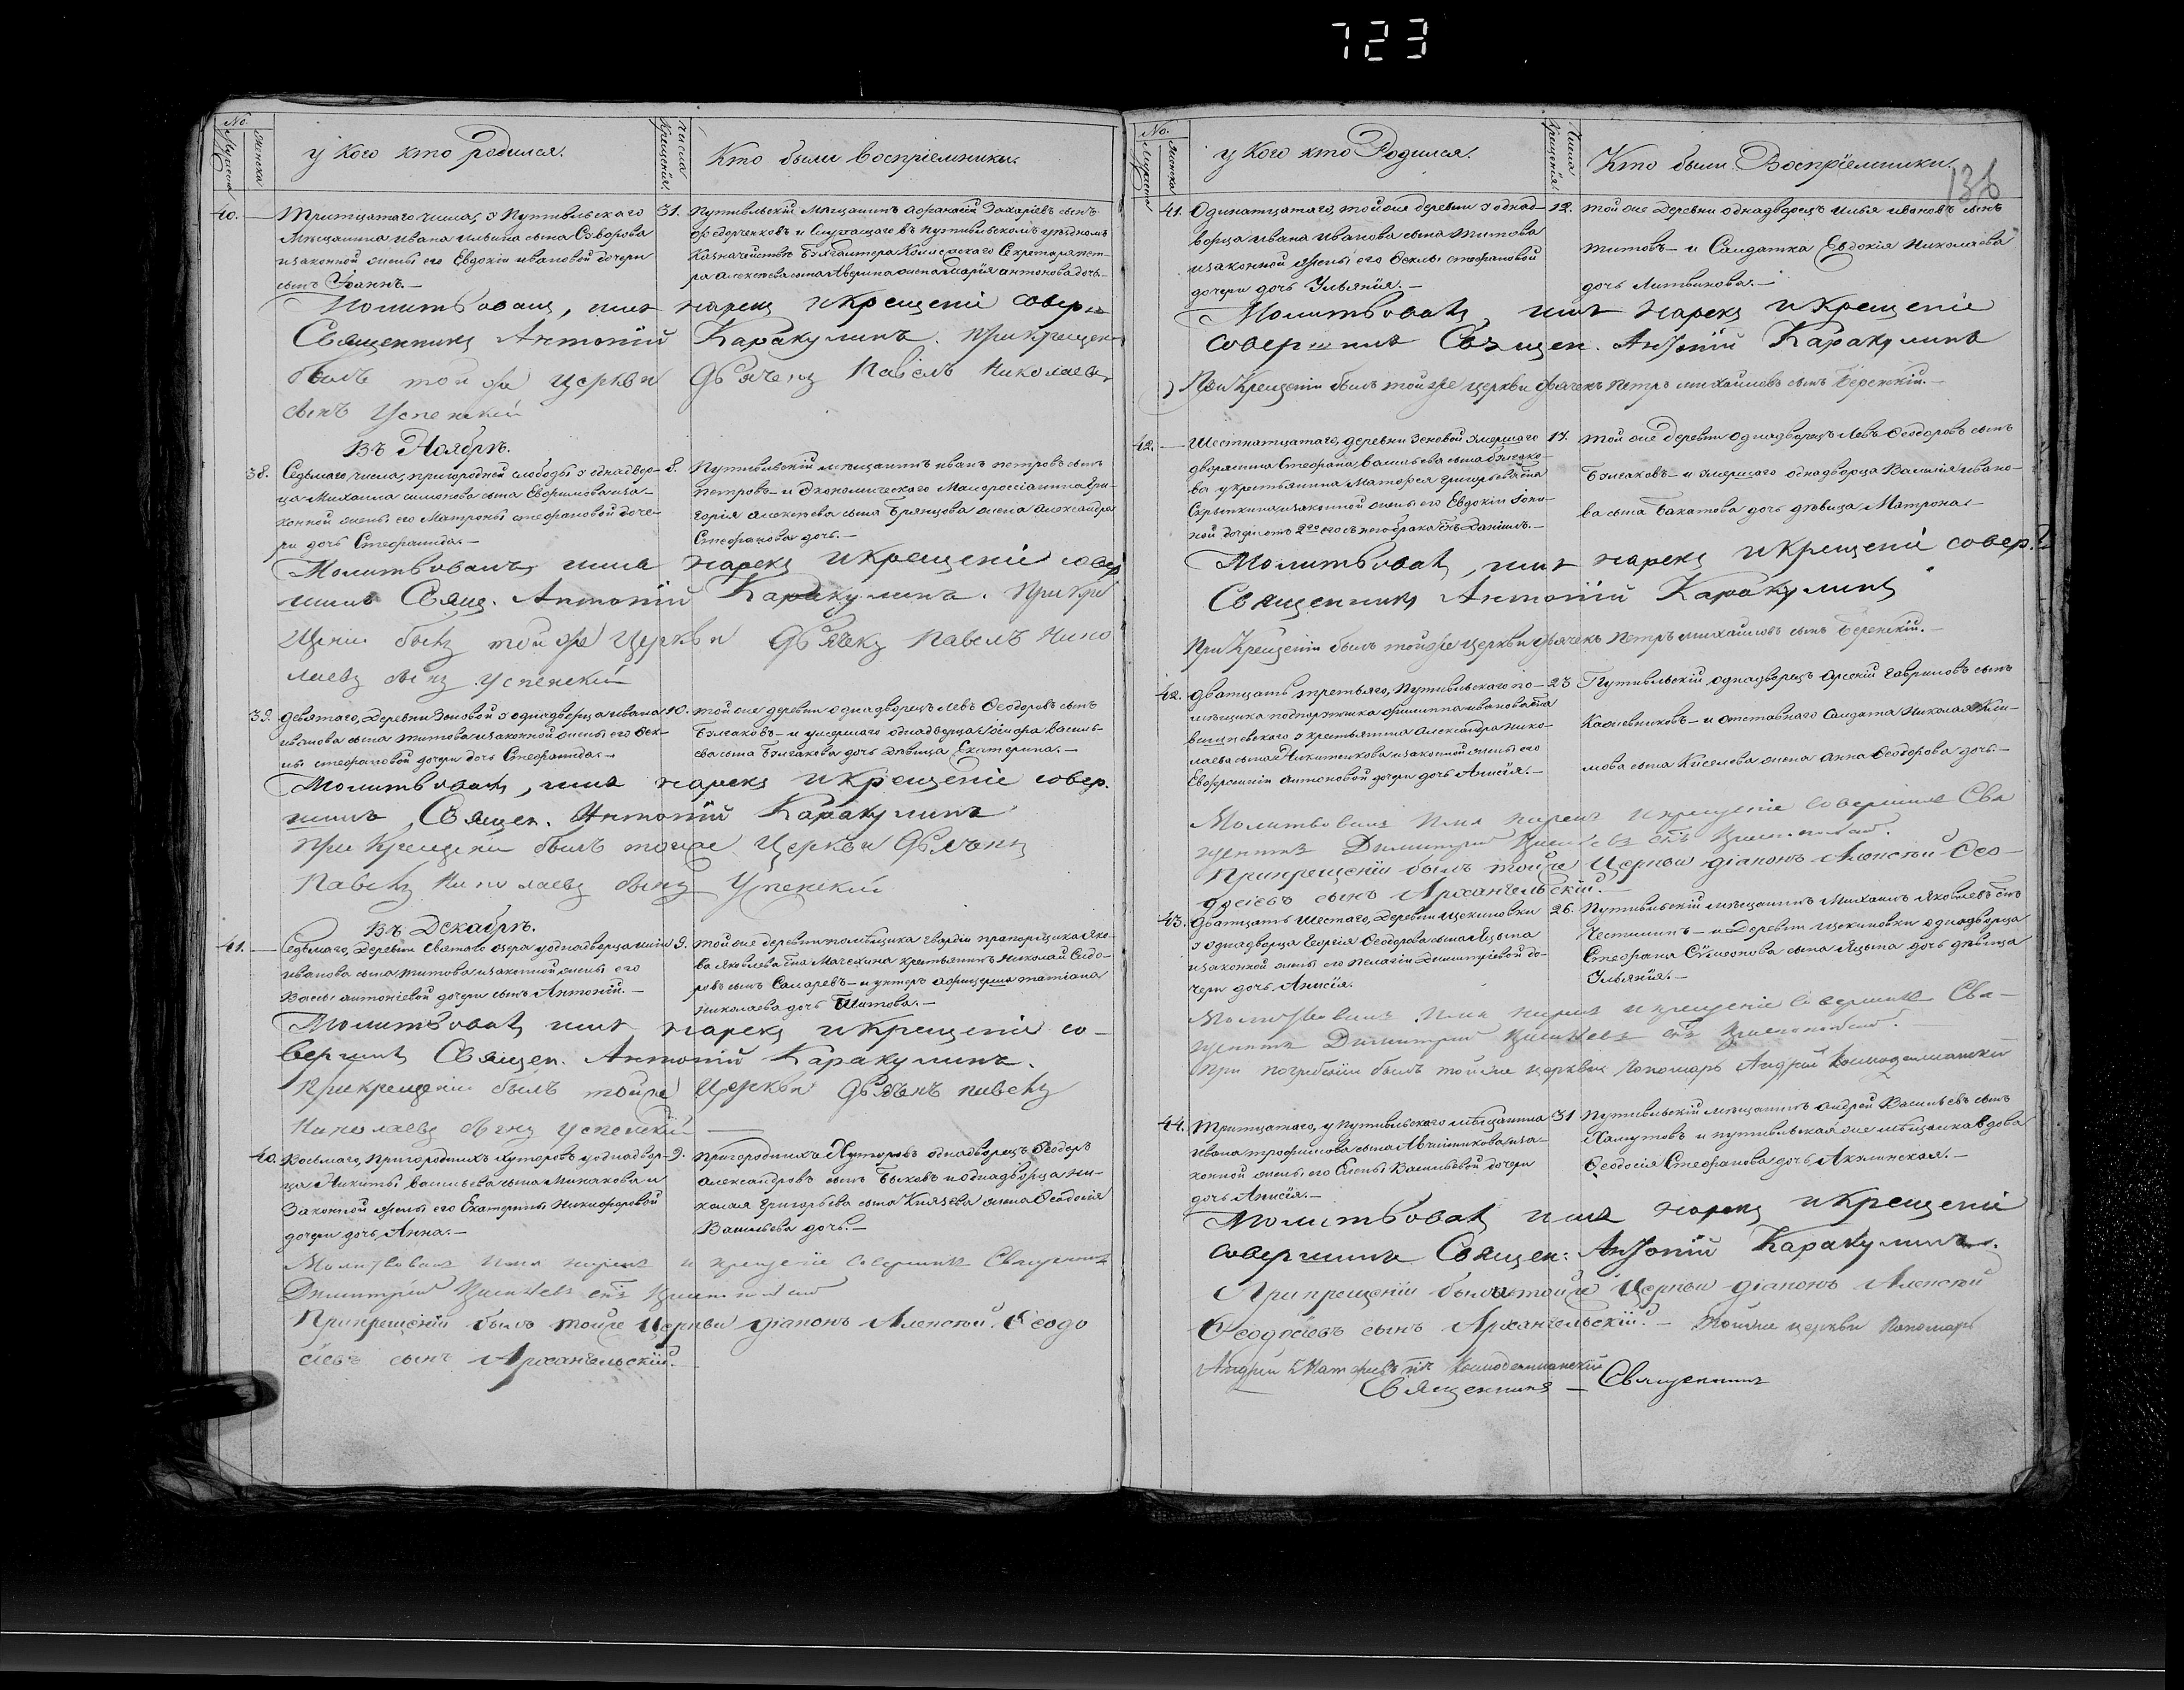 723
No.
Мужеска
Женска
у Кого кто родился.
Числа Крещенія.
Кто были воспріемники.
40.
Тритцатаго числа, у Путивльскаго
Мещанина Ивана Ильина сына Суворова
изаконной жены его Евдокіи ивановой дочери
сынъ Іоаннъ.—
31.
Путивльскій Мещанинъ Афанасій Захаріевъ сынъ
Федорченковъ и Служащаго въ Путивльскомъ уездномъ
Казначействе Бухгалтера Колежскаго Секретаря Пет-
ра Алексеева сына Аверина жена Марія антонова дочь.
Молитвовалъ, имя нарекъ икрещеніе совер
Священникъ Антоній Каракулинъ. Прикрещен
былъ той же церкви Дьячекъ Павелъ Николаевъ
сынъ Успенскій
Въ Ноябре.
38.
Седьмаго числа, пригородней слободы у однадвор-
ца Михаила симонова сына Ефимова иза-
конной жены его Матроны стефановой доче-
ри дочь Стефанида.—
8.
Путивльскій мещанинъ иванъ петровъ сынъ
Петровъ— и Экономическаго Малороссіанина Гри-
горія алексеева сына Брянцова жена александра
Стефанова дочь.—
Молитвовалъ, имя нарекъ икрещеніе совер
шилъ Свящ. Антоній Каракулинъ. При кре
щеніи былъ той же Церкви Дьячекъ Павелъ Нико
лаевъ сынъ Успенскій
39.
девятаго, Деревни Зеновой у однадворца ивана
иванова сына титова изаконной жены его Фек-
лы стефановой дочери дочь Стефанида.—
10.
той же деревни однадворецъ левъ Феодоровъ сынъ
Булгаковъ— и умершаго однадворца Іосифа василь-
ева сына Булгакова дочь девица Екатерина.—
Молитвовалъ, имя нарекъ икрещеніе совер.
шилъ, Священ. Антоній Каракулинъ
При крещеніи былъ тойже Церкви Дьячекъ
Павелъ Николаевъ сынъ Успенскій
Въ Декабре.
41.
Седьмаго, Деревни Святаго озера уоднадворца
иванова сына титова изаконной жены его
Вассы антоніевой дочери сынъ Антоній.—
9.
той же деревни помещика гвардіи прапорщика Яко-
ва Яковлева сна крестьянинъ Николай Сидо-
ровъ сынъ — и унтеръ офицерша таміана
николаева дочь Шитова.—
Молитвовалъ имя нарекъ икрещеніе со-
вершилъ Священ. Антоній Каракулинъ.
Прикрещеніи былъ тойже Церкви Дьячекъ павелъ
Николаевъ сынъ Успенскій
40.
Восьмаго, Пригороднихъ хуторовъ уоднадвор-
ца Никиты васильева сына Минакова и
Законной жены его Екатерины Никифоровой
дочери дочь Анна.—
9.
Пригороднихъ Хуторовъ однадворецъ Феодоръ
александровъ сынъ Быковъ и однадворца Ни-
колая Григорьева сына Князева жена Феодосія
Васильева дочь.—
Молитвовалъ имя нарекъ и крещеніе совершилъ Священникъ
Димитрій
Прикрещеніи былъ тойже Церкви діаконъ Алексей Феодо
сіевъ сынъ Архангельскій.
No.
Мужеска
Женска
у Кого кто Родился.
Числа крещенія.
Кто были Воспріемники.
136
41.
Одинатцатаго, той же деревни у однад-
ворца Ивана Иванова сына титова
изаконной жены его Феклы стефановой
дочери дочь Ульянія.—
12.
той же Деревни однадворецъ илья ивановъ сынъ
титовъ— и Салдатка Евдокія Николаева
дочь Литвинова.—
Молитвовалъ, имя нарекъ икрещеніе
совершилъ Священ. Антоній Каракулинъ
При Крещеніи былъ тойже церкви дьячекъ Петръ михайловъ сынъ
42.
Шестнатцатаго, деревни Зеновой умершаго
дворянина Стефана васильева сына Булгако-
ва у крестьянина Матфея григорьева сна
изаконной жены его Евдокіи
17.
той же Деревни однадворецъ Левъ Феодоровъ сынъ
Булгаковъ— и умершаго однадворца Василія ивано-
ва сына дочь девица Матрона.—
Молитвовалъ, имя нарекъ икрещеніе совер.
Священникъ Антоній Каракулинъ
При Крещеніи былъ тойже церкви дьячекъ Петръ михайловъ сынъ
42.
Дватцать третьяго, Путивльскаго по-
мещика подпоручика филиппа иванова сна
вишневскаго у крестьянина Александра Нико-
лаева сына Никитенкова изаконной жены его
Евфросиніи антоновой дочери дочь Анисія.—
23
Путивльскій однадворецъ арсеній гавриловъ сынъ
— и отставнаго Салдата Николая
мова сына Киселева жена Анна Феодорова дочь.—
Молитвовалъ имя нарекъ икрещеніе совершилъ Свя
щенникъ Димитрій
Прикрещеніи былъ тойже Церкви діаконъ Алексей Фео-
досіевъ сынъ Архангельскій.
43.
Дватцать шестаго, Деревни щекиновки
у однадворца Георгія Феодорова сына Яцына
изаконной жены его Пелагіи Димитріевой до-
чери дочь Анисія.
26.
Путивльскій мещанинъ Михаилъ Яковлевъ снъ
— и Деревни щекиновки однадворца
Стефана Сѵмеонова сына Яцына дочь девица
Ульянія.—
Молитвовалъ имя нарекъ икрещеніе совершилъ Свя-
щенникъ Димитрій
При погребеніи былъ той же церкви пономарь Андрей Космодемианскій
44.
Тритцатаго, у путивльскаго мещанина
Ивана трофимова сына иза-
конной жены его Елены Васильевой дочери
дочь Анисія.—
31
Путивльскій мещанинъ андрей Васильевъ сынъ
Хамутовъ и путивльская же мещанка вдова
Феодосія Стефанова дочь —
Молитвовалъ имя нарекъ икрещеніе
совершилъ Священ: Антоній Каракулинъ.
Прикрещеніи былъ тойже Церкви діаконъ Алексей
Феодосіевъ сынъ Архангельскій.— Тойже церкви Пономарь
Андрей Матфеевъ снъ Космодемианскій
Священникъ — Священникъ